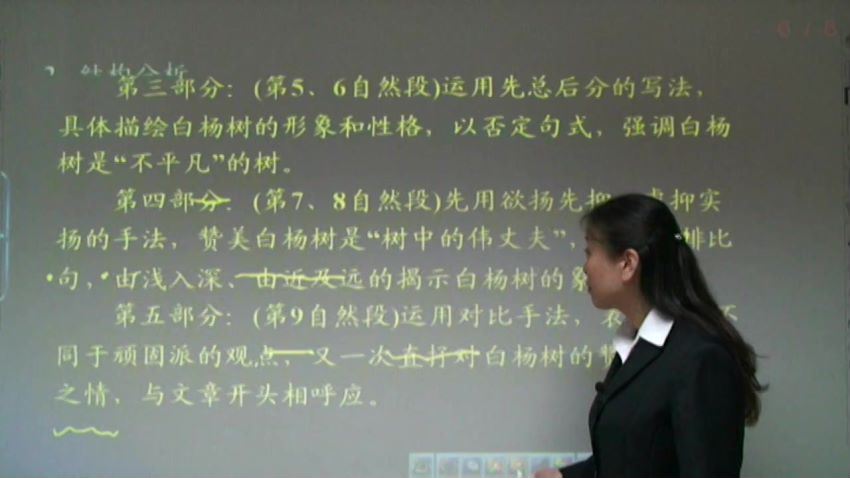 6 / 8
2 结构分析
第三部分：(第5、6自然段)运用先总后分的写法，
具体描绘白杨树的形象和性格，以否定句式，强调白杨
树是“不平凡”的树。
第四部分：(第7、8自然段)先用欲扬先抑、虚抑实
扬的手法，赞美白杨树是“树中的伟丈夫”，排比
句，由浅入深、由近及远的揭示白杨树的象
第五部分：(第9自然段)运用对比手法，表不
同于顽固派的观点，又一次直抒对白杨树的赞
之情，与文章开头相呼应。